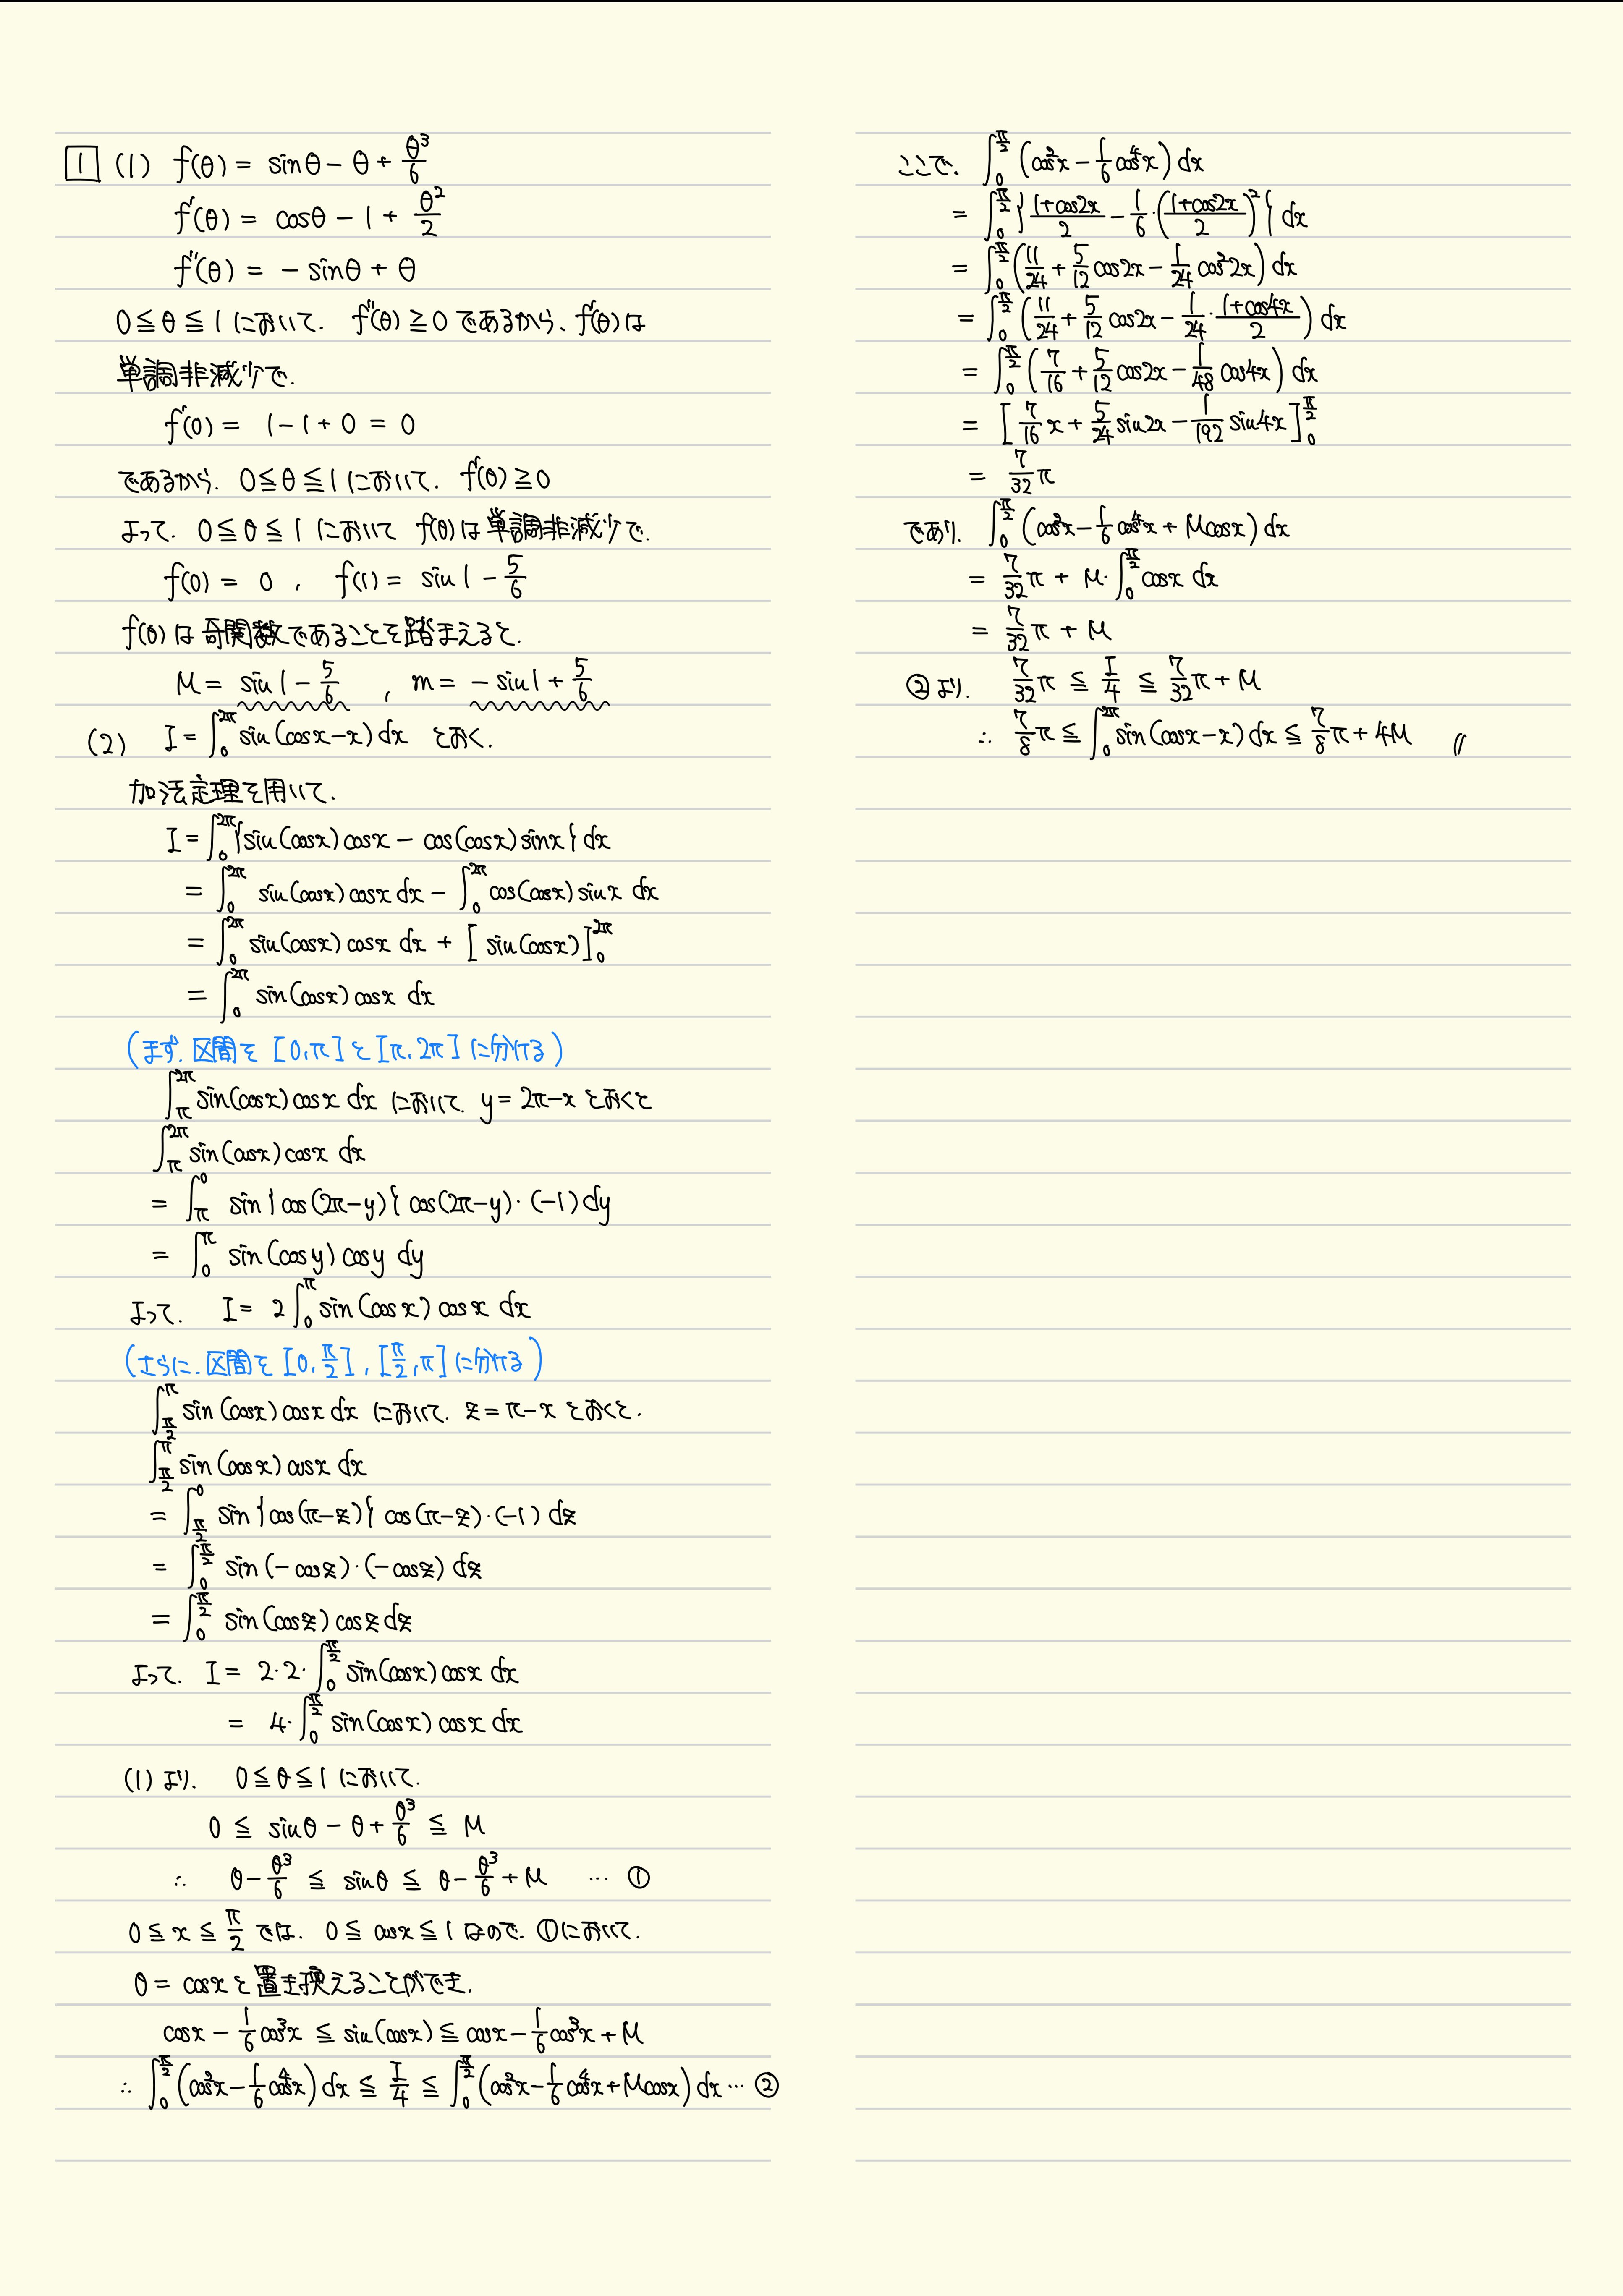 1 (1) f(θ) = sinθ − θ + θ³/6
f'(θ) = cosθ − 1 + θ²/2
f''(θ) = − sinθ + θ
0 ≦ θ ≦ 1 において. f''(θ) ≧ 0 であるから、f'(θ)は
単調非減少で.
f'(0) = 1 − 1 + 0 = 0
であるから. 0 ≦ θ ≦ 1 において. f'(θ) ≧ 0
よって. 0 ≦ θ ≦ 1 において f(θ)は単調非減少で.
f(0) = 0 , f(1) = sin1 − 5/6
f(θ)は奇関数であることを踏まえると.
M = sin1 − 5/6 , m = − sin1 + 5/6
(2) I = ∫₀^{2π} sin(cosx−x)dx とおく.
加法定理を用いて.
I = ∫₀^{2π} {sin(cosx)cosx − cos(cosx)sinx} dx
= ∫₀^{2π} sin(cosx)cosx dx − ∫₀^{2π} cos(cosx)sinx dx
= ∫₀^{2π} sin(cosx)cosx dx + [sin(cosx)]₀^{2π}
= ∫₀^{2π} sin(cosx)cosx dx
(まず. 区間を [0,π] と [π,2π] に分ける)
∫_π^{2π} sin(cosx)cosx dx において. y = 2π−x とおくと
∫_π^{2π} sin(cosx)cosx dx
= ∫_π^0 sin{cos(2π−y)} cos(2π−y)・(−1)dy
= ∫₀^π sin(cosy)cosy dy
よって. I = 2∫₀^π sin(cosx)cosx dx
(さらに. 区間を [0,π/2] , [π/2,π] に分ける)
∫_{π/2}^π sin(cosx)cosx dx において. z = π−x とおくと.
∫_{π/2}^π sin(cosx)cosx dx
= ∫_{π/2}^0 sin{cos(π−z)} cos(π−z)・(−1)dz
= ∫₀^{π/2} sin(−cosz)・(−cosz)dz
= ∫₀^{π/2} sin(cosz)cosz dz
よって. I = 2・2・∫₀^{π/2} sin(cosx)cosx dx
= 4・∫₀^{π/2} sin(cosx)cosx dx
(1)より. 0 ≦ θ ≦ 1 において.
0 ≦ sinθ − θ + θ³/6 ≦ M
∴ θ − θ³/6 ≦ sinθ ≦ θ − θ³/6 + M … ①
0 ≦ x ≦ π/2 では. 0 ≦ cosx ≦ 1 なので. ①において.
θ = cosx と置き換えることができ.
cosx − 1/6 cos³x ≦ sin(cosx) ≦ cosx − 1/6 cos³x + M
∴ ∫₀^{π/2} (cos²x − 1/6 cos⁴x)dx ≦ I/4 ≦ ∫₀^{π/2} (cos²x − 1/6 cos⁴x + Mcosx)dx … ②
ここで. ∫₀^{π/2} (cos²x − 1/6 cos⁴x)dx
= ∫₀^{π/2} {(1+cos2x)/2 − 1/6・((1+cos2x)/2)²} dx
= ∫₀^{π/2} (11/24 + 5/12 cos2x − 1/24 cos²2x)dx
= ∫₀^{π/2} (11/24 + 5/12 cos2x − 1/24・(1+cos4x)/2)dx
= ∫₀^{π/2} (7/16 + 5/12 cos2x − 1/48 cos4x)dx
= [7/16 x + 5/24 sin2x − 1/192 sin4x]₀^{π/2}
= 7/32 π
であり. ∫₀^{π/2} (cos²x − 1/6 cos⁴x + Mcosx)dx
= 7/32 π + M・∫₀^{π/2} cosx dx
= 7/32 π + M
②より. 7/32 π ≦ I/4 ≦ 7/32 π + M
∴ 7/8 π ≦ ∫₀^{2π} sin(cosx−x)dx ≦ 7/8 π + 4M //